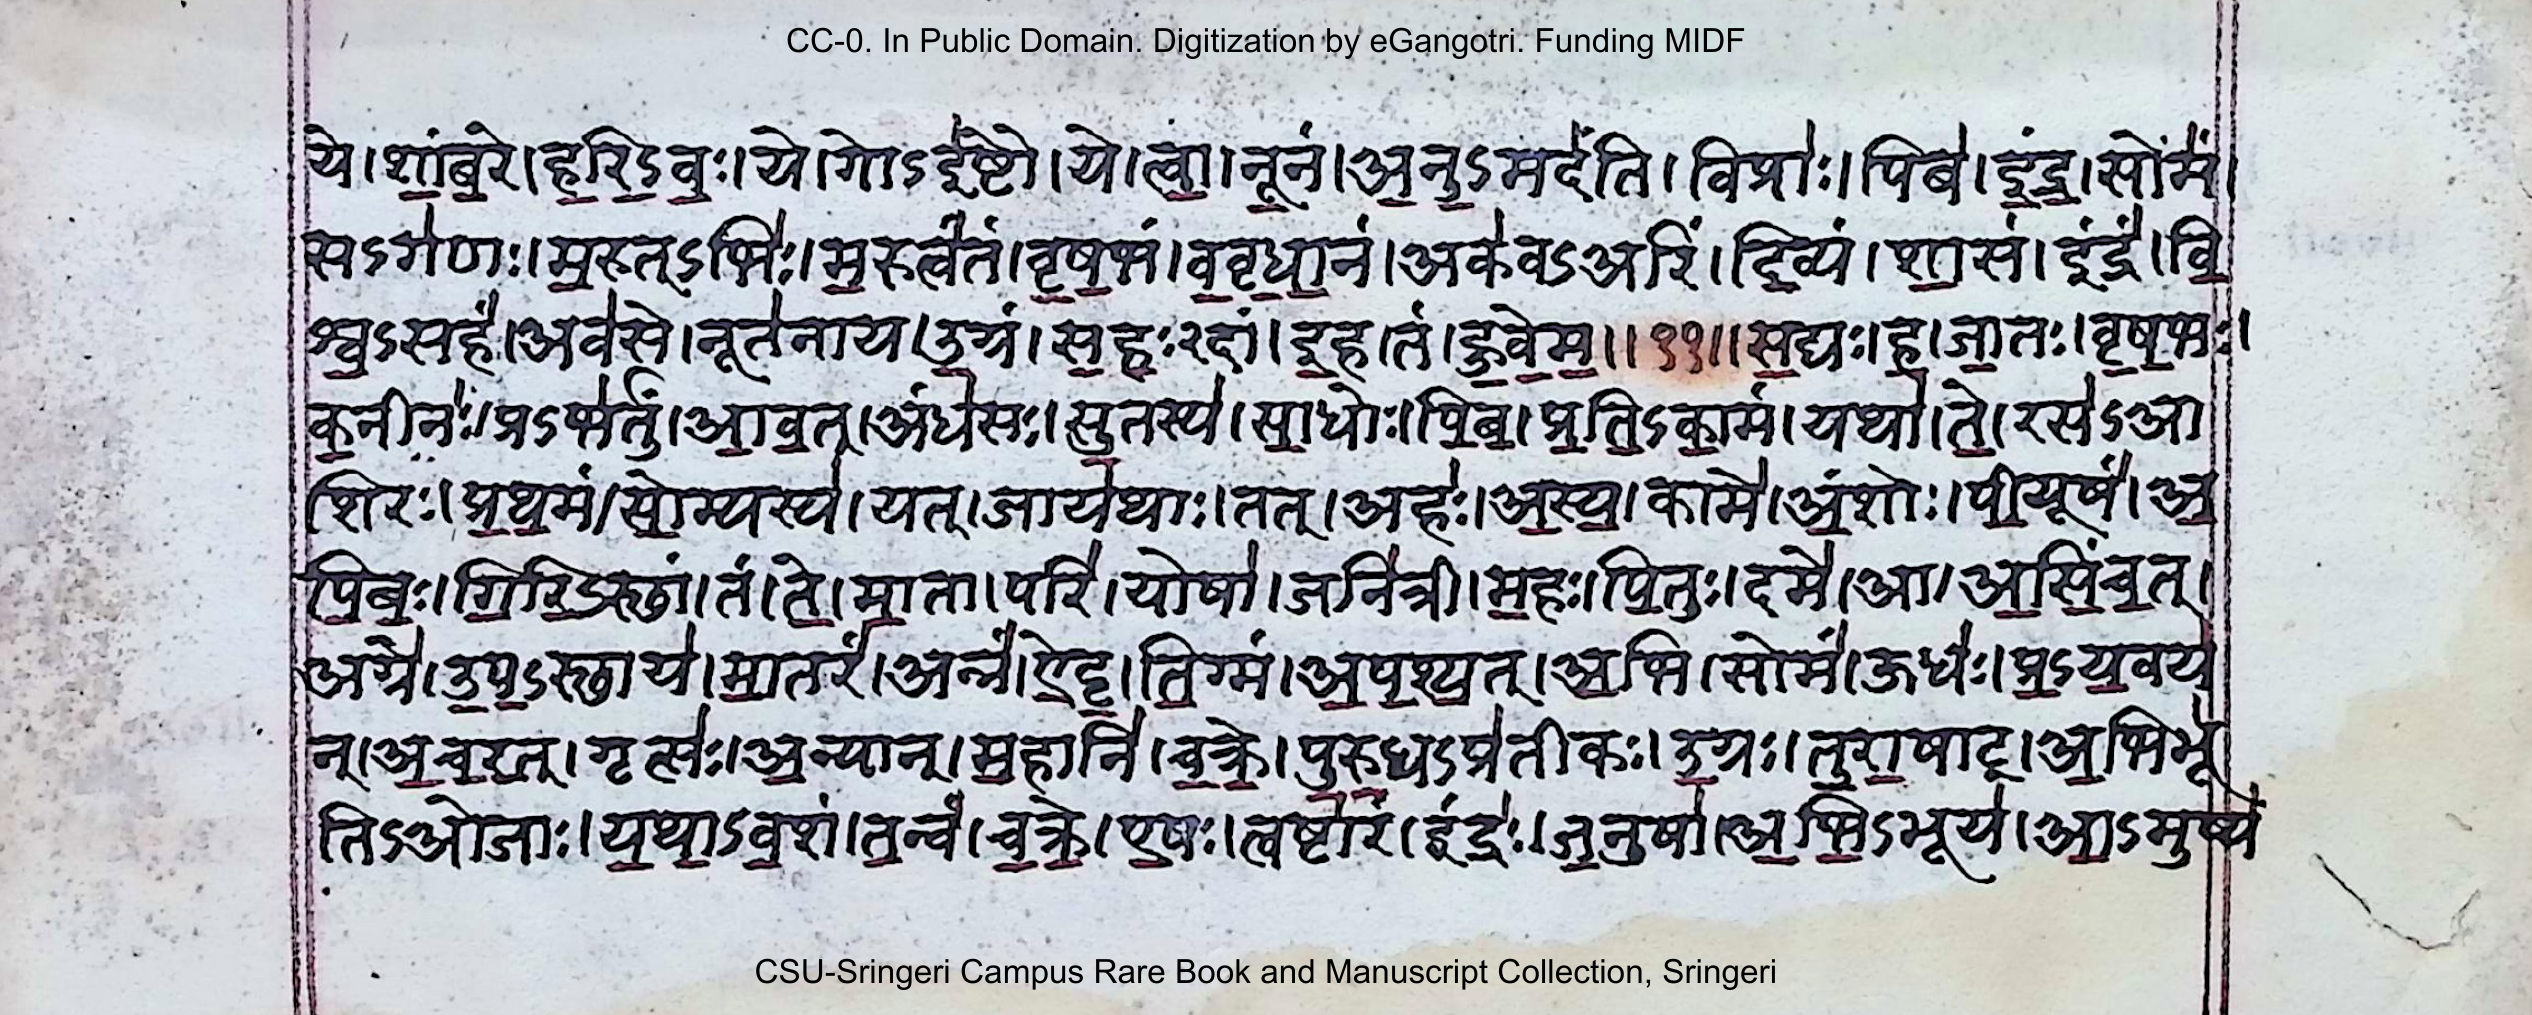 CC-0. In Public Domain. Digitization by eGangotri. Funding MIDF
ये। शां॒ब॒रे। ह॒रि॒ऽव॒ः। ये। गोऽइ॑ष्टौ। ये। त्वा॒। नू॒नं। अ॒नु॒ऽमदं॑ति। विप्राः॑। पिब॑। इं॒द्र॒। सोमं॑।
सऽग॑णः। म॒रुत्ऽभिः॑। म॒रुत्वं॑तं। वृ॒ष॒भं। व॒वृ॒धा॒नं। अक॑वऽअरिं। दि॒व्यं। शा॒सं। इंद्रं॑। वि॒
श्व॒ऽसहं॑। अव॑से। नूत॑नाय। उ॒ग्रं। स॒ह॒ःऽदां। इ॒ह। तं। हु॒वे॒म॒॥ ११॥ स॒द्यः। ह॒। जा॒तः। वृ॒ष॒भः।
क॒नीनः॑। प्रऽभ॑र्तुं। आ॒व॒त्। अंध॑सः। सु॒तस्य॑। सा॒धोः। पि॒ब॒। प्र॒ति॒ऽका॒मं। यथा॑। ते॒। रस॑ऽआ
शिरः। प्र॒थ॒मं। सो॒म्यस्य॑। यत्। जाय॑थाः। तत्। अहः॑। अ॒स्य॒। कामे॑। अं॒शोः। पी॒यूषं॑। अ॒
पि॒ब॒ः। गि॒रि॒ऽस्थां। तं। ते॒। मा॒ता। परि॑। योषा॑। जनि॑त्री। म॒हः। पि॒तुः। दमे॑। आ। आ॒सिं॒च॒त्।
अग्रे॑। उ॒प॒ऽस्थाय॑। मा॒तरं॑। अन्नं॑। ऐ॒ट्ट॒। ति॒ग्मं। अ॒प॒श्य॒त्। अ॒भि। सोमं॑। ऊधः॑। प्र॒ऽय॒वय॑
न्। अ॒च॒र॒त्। गृत्सः॑। अ॒न्यान्। म॒हानि॑। च॒क्रे॒। पु॒रु॒धऽप्र॑तीकः। उ॒ग्रः। तु॒रा॒षाट्। अ॒भिभू॑
तिऽओजाः। य॒था॒ऽव॒शं। त॒न्वं॑। च॒क्रे॒। ए॒षः। त्वष्टा॑रं। इंद्रः॑। ज॒नु॒षा॑। अ॒भि॒ऽभूय॑। आ॒ऽमुष्य॑
CSU-Sringeri Campus Rare Book and Manuscript Collection, Sringeri